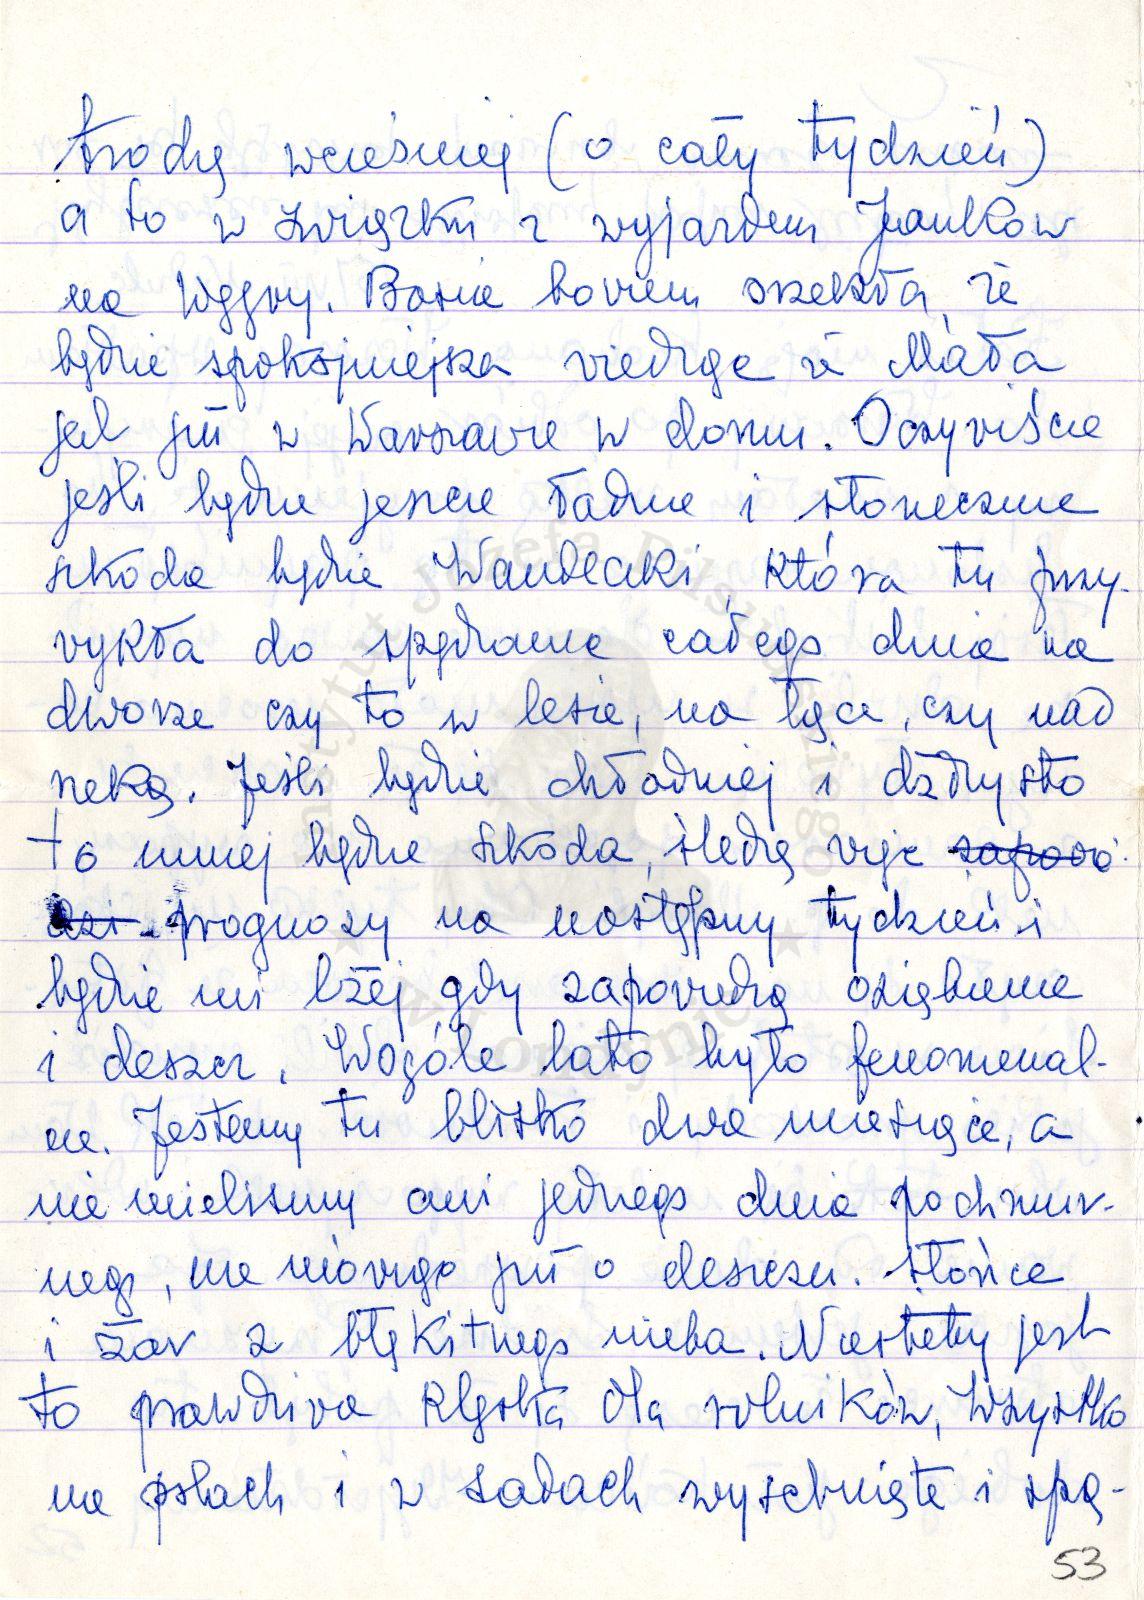 środę wcześniej (o cały tydzień)
a to w związku z wyjazdem Janków
na Węgry. Basia bowiem orzekła, że
będzie spokojniejsza wiedząc że Mała
jest już w Warszawie w domu. Oczywiście
jeśli będzie jeszcze ładnie i słonecznie
szkoda będzie Wandeczki, która tu przy-
wykła do spędzania całego dnia na
dworze czy to w lesie, na łące, czy nad
rzeką. Jeśli będzie chłodniej i dżdżysto
to mniej będzie szkoda, śledzę więc zapowie
dzi prognozy na następny tydzień i
będzie mi lżej gdy zapowiedzą oziębienie
i deszcz. Wogóle lato było fenomenal-
ne. Jesteśmy tu blisko dwa miesiące, a
nie mieliśmy ani jednego dnia pochmur-
nego, nie mówiąc już o deszczu. Słońce
i żar z błękitnego nieba. Niestety jest
to prawdziwa klęska dla rolników, wszystko
na polach i w sadach wyschnięte i spa-
53
Instytut Józefa Piłsudskiego
w Londynie